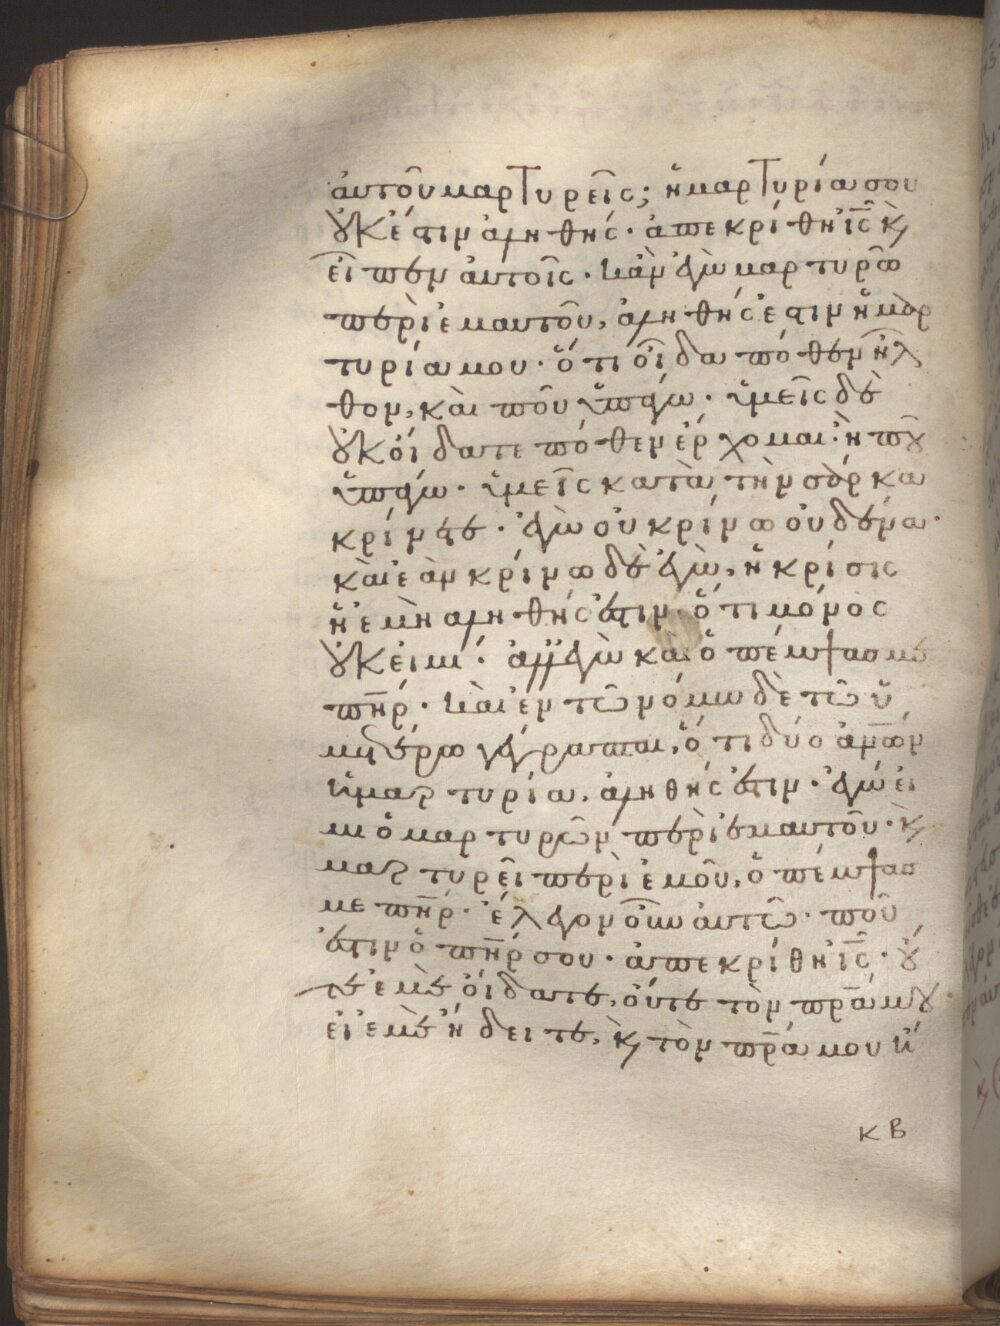 ἀυτοῦ μαρτυρεῖς; ἡ μαρτυρία σου
οὐκ ἔστιν ἀληθής· ἀπεκρίθη ἰς̅ κ̀
εἶπεν ἀυτοῖς· κἀν ἐγὼ μαρτυρῶ
περὶ ἐμαυτοῦ, ἀληθής ἐστιν ἡ μαρ
τυρία μου· ὅτι οἶδα πόθεν ἦλ
θον, καὶ ποῦ ὑπάγω· ὑμεῖς δὲ
οὐκ οἴδατε πόθεν ἔρχομαι· ἢ ποῦ
ὑπάγω· ὑμεῖς κατὰ τὴν σάρκα
κρίνετε· ἐγὼ οὐ κρίνω οὐδένα·
καὶ ἐὰν κρίνω δὲ ἐγὼ, ἡ κρίσις
ἡ ἐμὴ ἀληθής ἐστιν· ὅτι μόνος
οὐκ εἰμί· ἀλλ ἐγὼ καὶ ὁ πέμψας με
πη̅ρ· καὶ ἐν τῶ νόμω δὲ τῶ ὑ
μετέρω γέγραπται, ὅτι δύο ἀν̅ων
ἡ μαρτυρία, ἀληθής ἐστιν· ἐγώ εἰ
μι ὁ μαρτυρῶν περὶ ἐμαυτοῦ· κ̀
μαρτυρεῖ περὶ ἐμοῦ, ὁ πέμψας
με πη̅ρ· ἔλεγον οὖν ἀυτῶ· ποῦ
ἐστιν ὁ πη̅ρ σου· ἀπεκρίθη ἰς̅· οὔ
τε ἐμὲ οἴδατε, οὔτε τὸν πρ̅α μου
εἰ ἐμὲ ἤδειτε, κ̀ τὸν πρ̅α μου ἤ
κβ